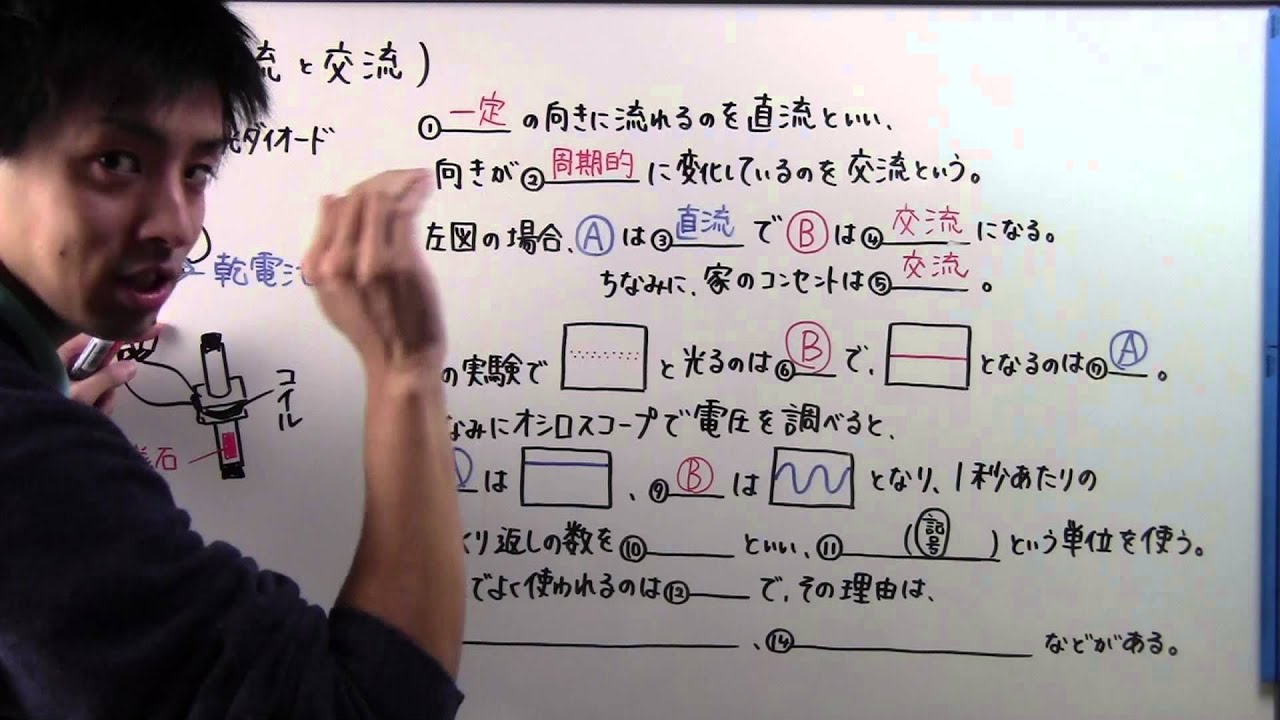 流と交流)
光ダイオード
①一定の向きに流れるのを直流といい、
向きが②周期的に変化しているのを交流という。
左図の場合、Ⓐは③直流でⒷは④交流になる。
ちなみに、家のコンセントは⑤交流。
乾電池
コイル
石
の実験で と光るのは⑥Ⓑで、 となるのは⑦Ⓐ。
なみにオシロスコープで電圧を調べると、
は 、⑨Ⓑは となり、1秒あたりの
くり返しの数を⑩ といい、⑪ (記号 )という単位を使う。
でよく使われるのは⑫ で、その理由は、
、⑭ などがある。